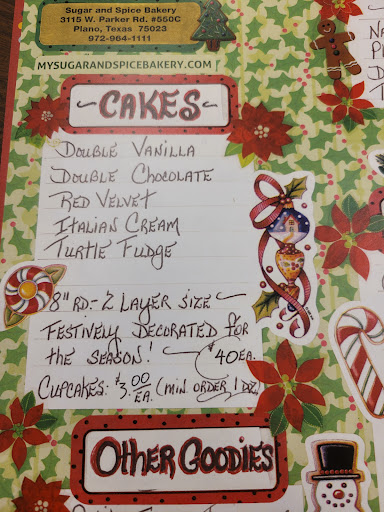 Sugar and Spice Bakery
3115 W. Parker Rd. #550C
Plano, Texas 75023
972-964-1111
MYSUGARANDSPICEBAKERY.COM
~CAKES~
DOUBLE VANILLA
DOUBLE CHOCOLATE
RED VELVET
ITALIAN CREAM
TURTLE FUDGE
8" RD.- 2 LAYER SIZE ~
FESTIVELY DECORATED for
the SEASON! ~ $40 EA.
CUPCAKES: $3.00 EA. (MIN ORDER 1 DZ)
OTHER GOODIES